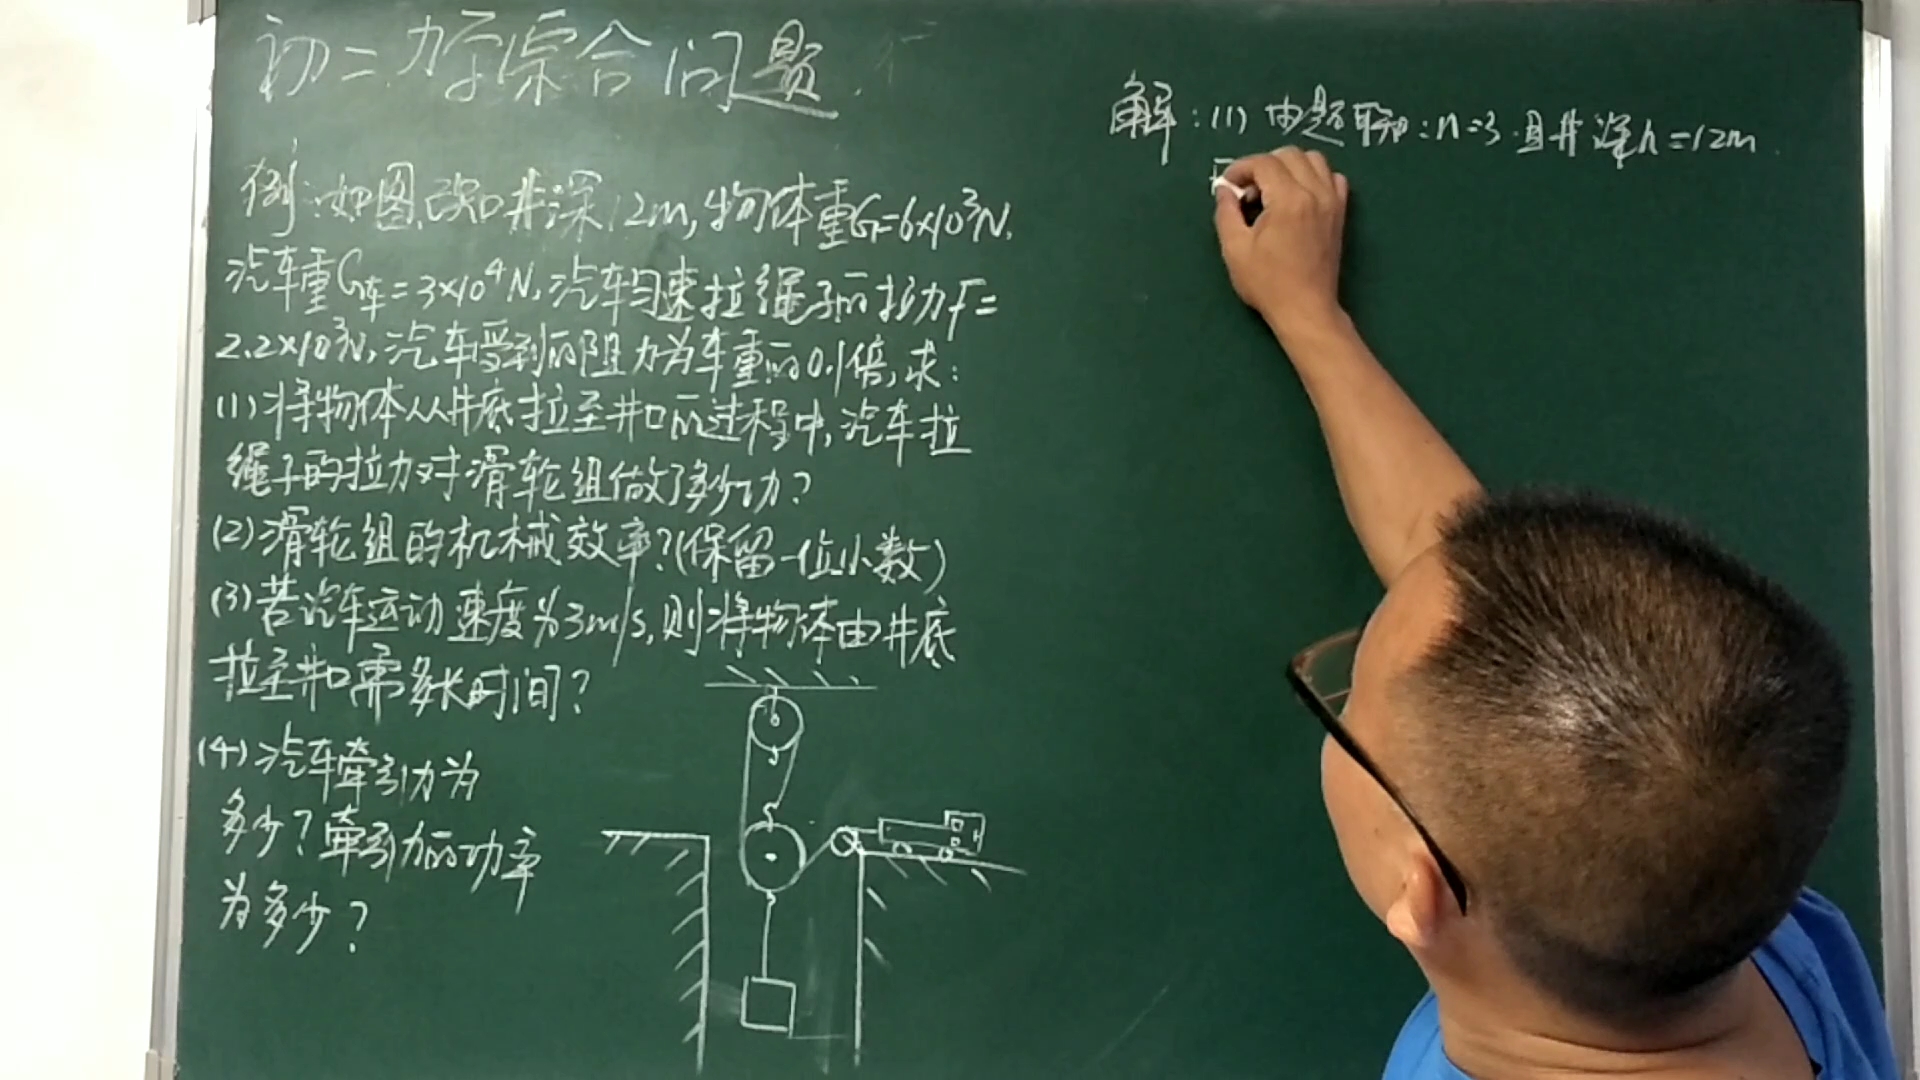 初二力学综合问题
例:如图,已知井深12m,物体重G=6×10³N,
汽车重G车=3×10⁴N,汽车匀速拉绳子的拉力F=
2.2×10³N,汽车受到的阻力为车重的0.1倍,求:
(1)将物体从井底拉至井口的过程中,汽车拉
绳子的拉力对滑轮组做了多少功?
(2)滑轮组的机械效率?(保留一位小数)
(3)若汽车运动速度为3m/s,则将物体由井底
拉至井口需多长时间?
(4)汽车牵引力为
多少?牵引力的功率
为多少?
解:(1)由题可知:n=3 且井深h=12m